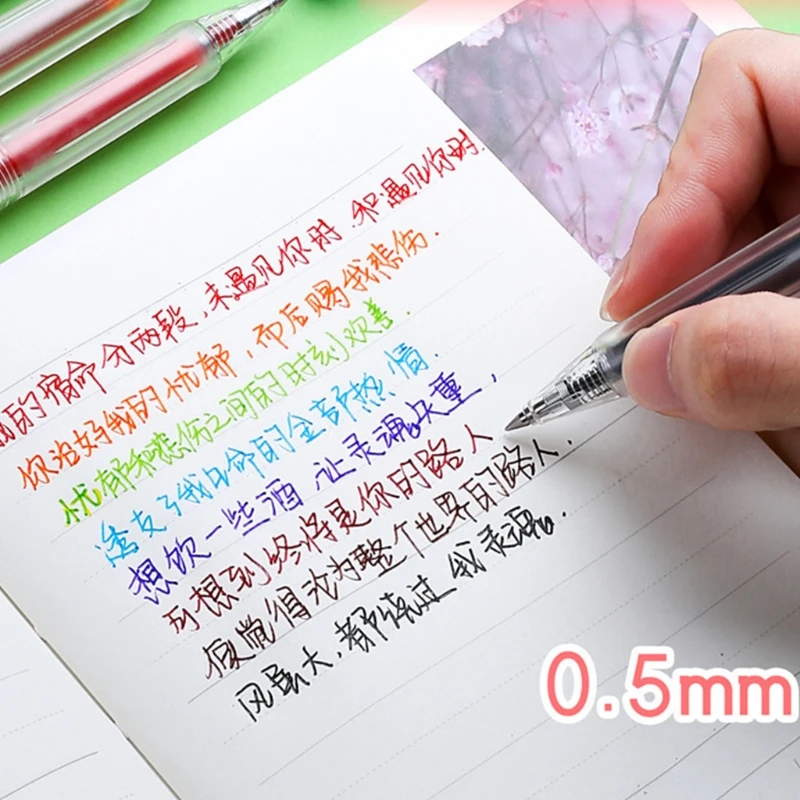 我的宿命分两段,未遇见你时.和遇见你时.
你治好我的忧郁,而后赐我悲伤.
忧郁和悲伤之间的时刻欢善.
透支了我生命的全部热情.
想饮一些酒,让灵魂失重,
可想到终将是你的路人
便觉得沦为整个世界的路人.
风虽大,都绕过我灵魂.
0.5mm